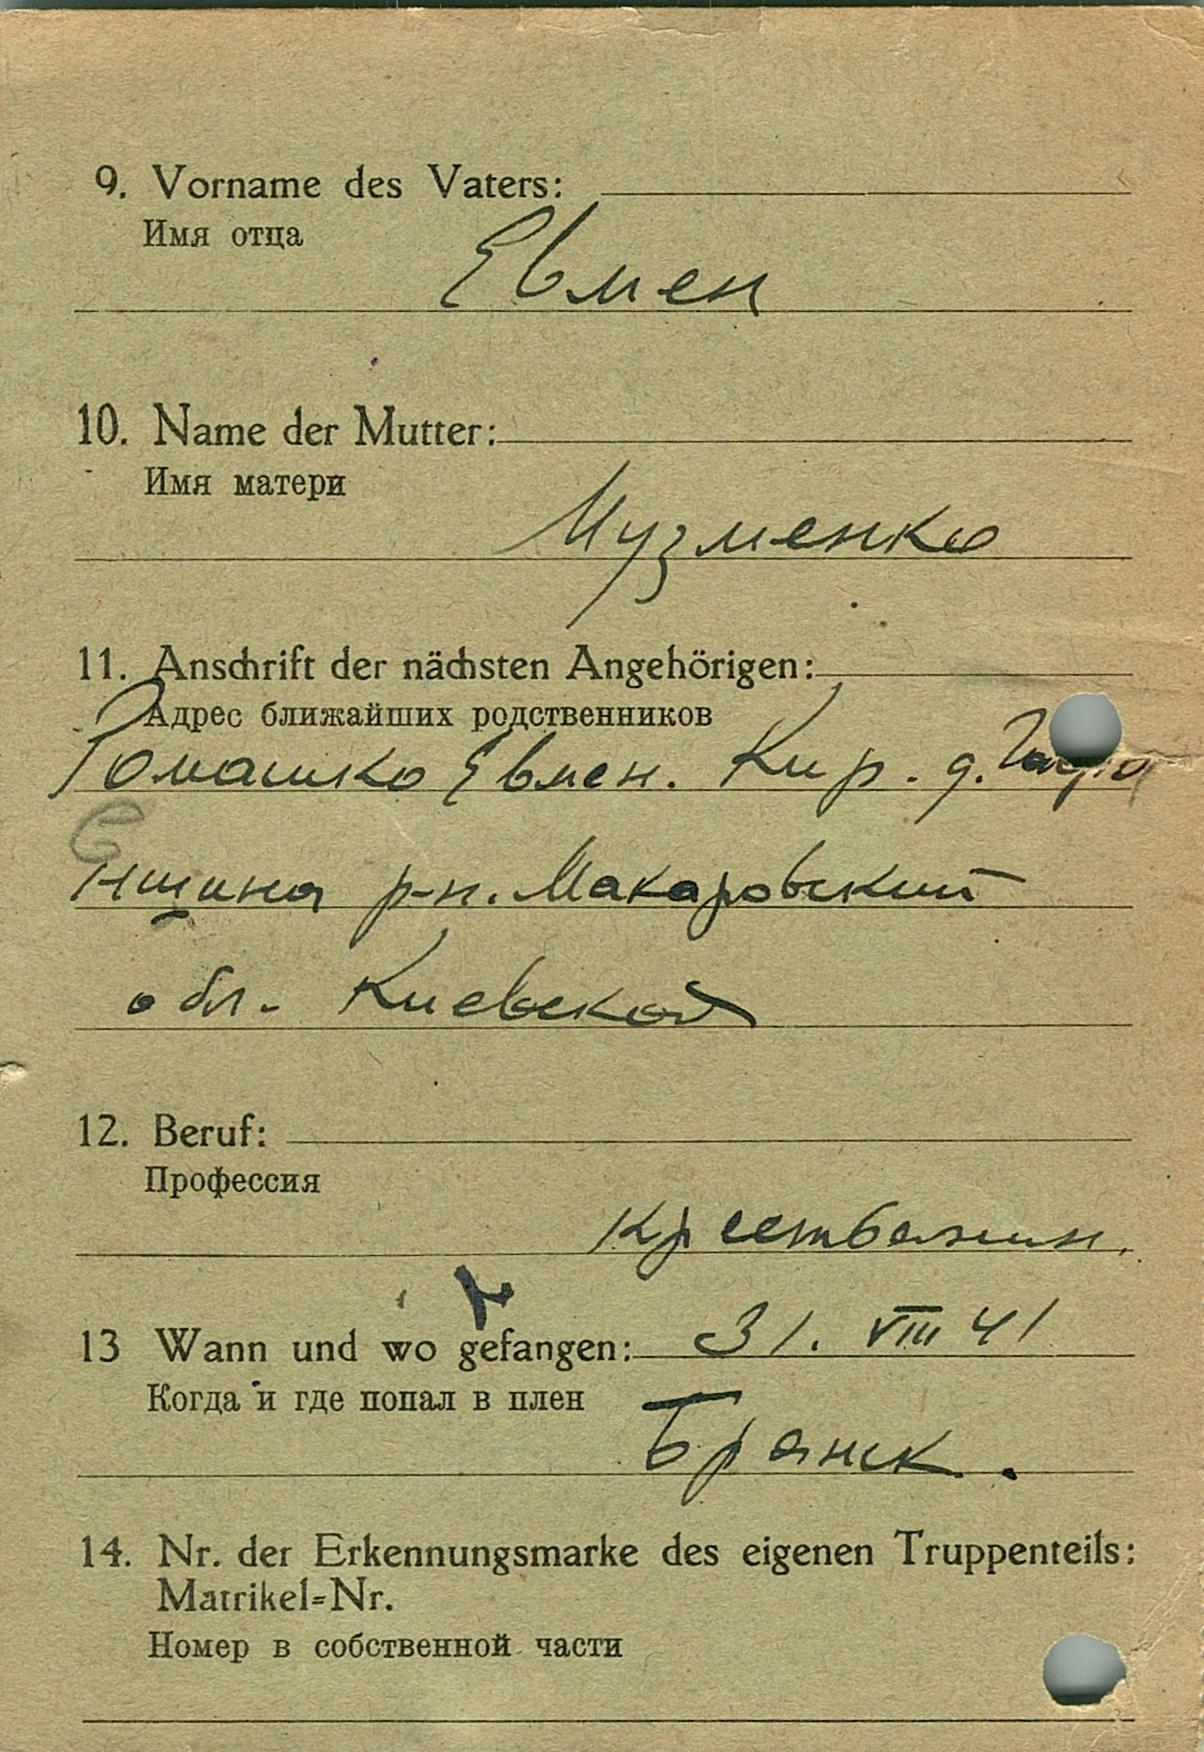 9. Vorname des Vaters:
Имя отца
Евмен
10. Name der Mutter:
Имя матери
Музменко
11. Anschrift der nächsten Angehörigen:
Адрес ближайших родственников
Ромашко Евмен. Кир. д.
нщина р-н. Макаровский
обл. Киевской
12. Beruf:
Профессия
крестьянин.
13 Wann und wo gefangen: 31. VIII 41
Когда и где попал в плен
Брянск.
14. Nr. der Erkennungsmarke des eigenen Truppenteils:
Matrikel=Nr.
Номер в собственной части